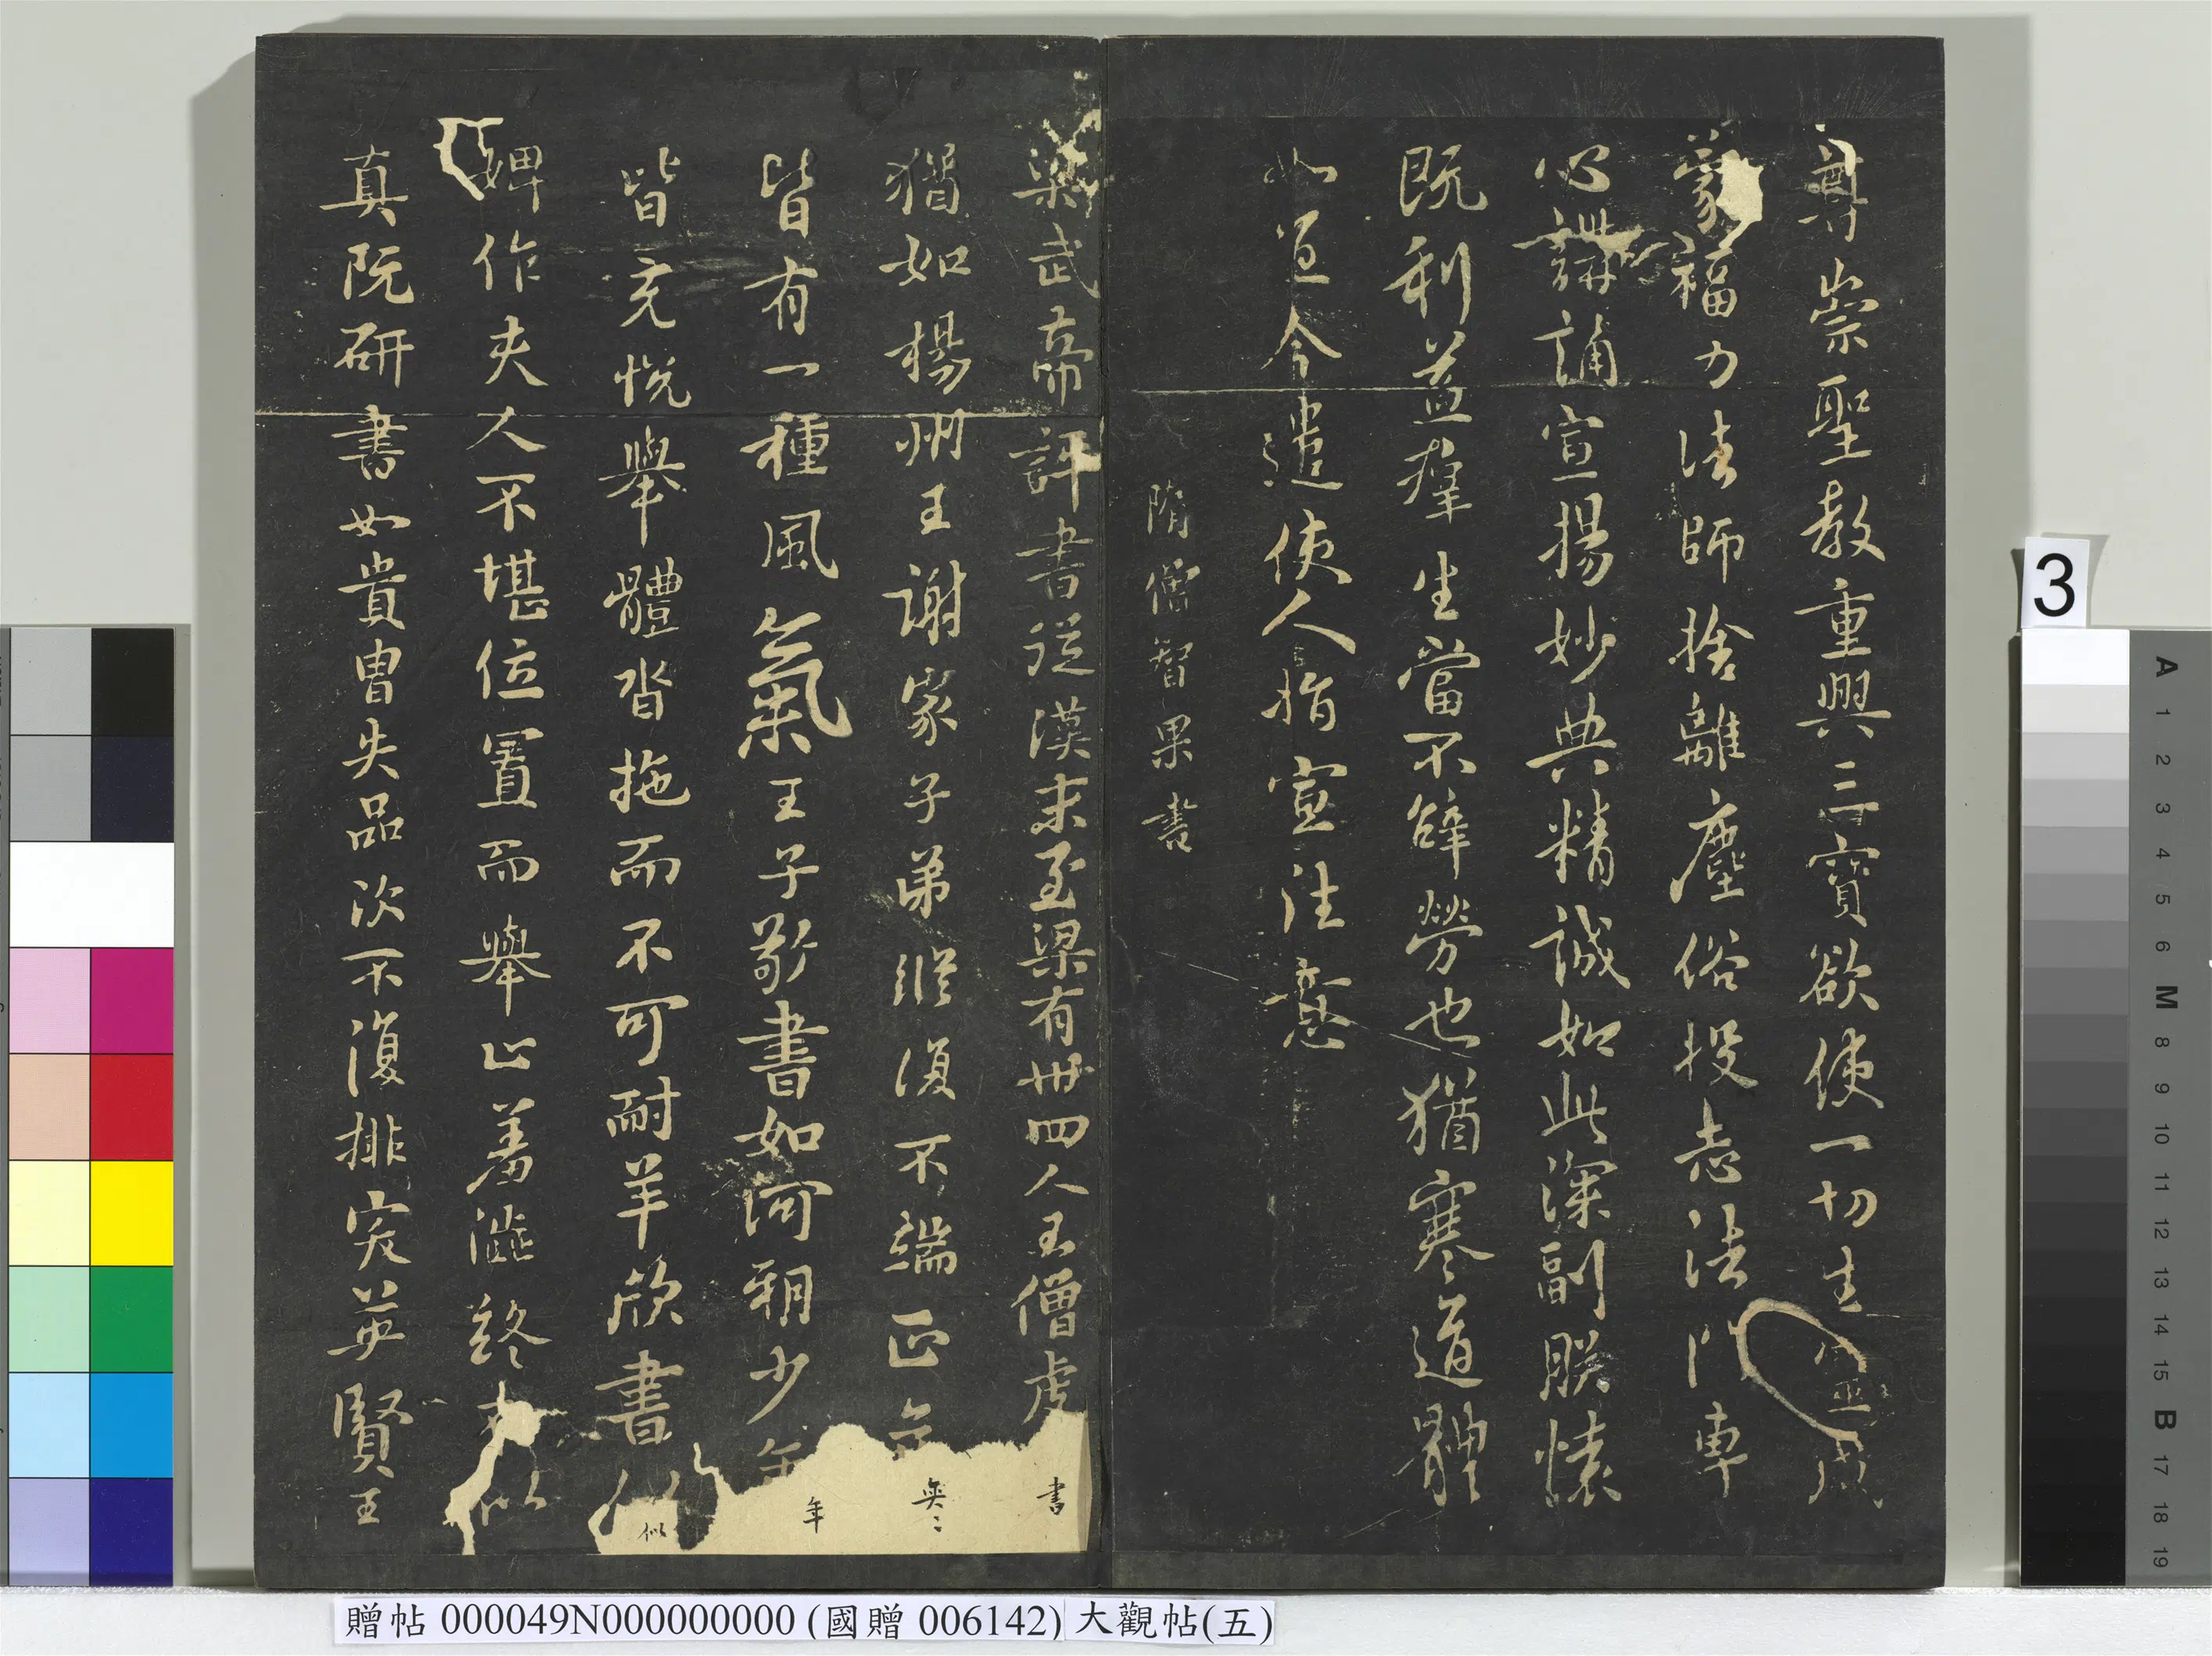 尊崇聖教重興三寶欲使一切生咸
蒙福力法師捨離塵俗投志法門專
心講誦宣揚妙典精誠如此深副朕懷
既利益羣生當不辭勞也猶寒道體
如宜今遣使人指宣往意
隋僧智果書
梁武帝評書從漢末至梁有卌四人王僧虔
書
猶如楊州王謝家子弟縱復不端正
奕〻
皆有一種風氣王子敬書如河朔少年
年
皆充悅舉體沓拖而不可耐羊欣書似
似
婢作夫人不堪位置而舉止羞澁終似
真阮研書如貴冑失品次不復排突英賢王
3
A 1 2 3 4 5 6 M 8 9 10 11 12 13 14 15 B 17 18 19
贈帖 000049N000000000 (國贈 006142) 大觀帖(五)